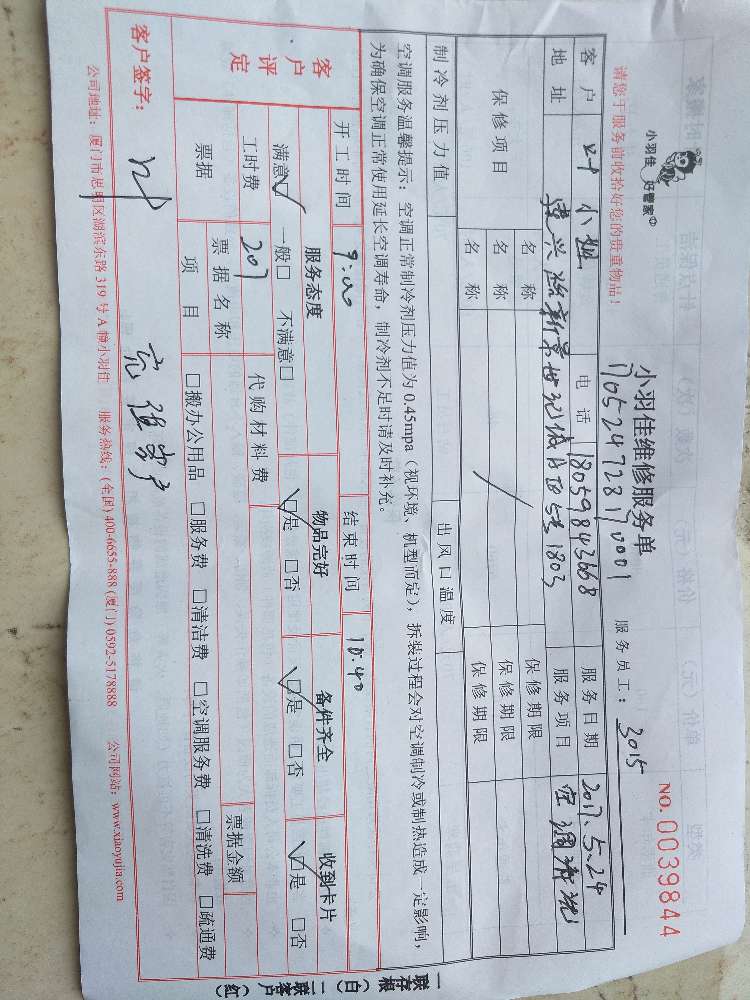 小羽佳
好管家
小羽佳维修服务单
NO.0039844
170524728170001
请您于服务前收拾好您的贵重物品!
服务员工: 3015
客户 叶小姐 电话 18059843668 服务日期 2017.5.24
地址 1803 服务项目 空调清洗
保修项目 名称 保修期限
名称 保修期限
名称 保修期限
制冷剂压力值 出风口温度
空调服务温馨提示:空调正常制冷剂压力值为0.45mpa(视环境、机型而定),拆装过程会对空调制冷或制热造成一定影响,
为确保空调正常使用延长空调寿命,制冷剂不足时请及时补充。
开工时间 9:00 结束时间 10:40
客户评定 服务态度 物品完好 备件齐全 收到卡片
满意☑ 一般□ 不满意□ ☑是 □否 ☑是 □否 ☑是 □否
工时费 207 代购材料费
票据 票据名称 票据金额
项目 □搬办公用品 □服务费 □清洁费 □空调服务费 □清洗费 □疏通费
客户签字: 叶
公司地址:厦门市思明区湖滨东路319号A幢小羽佳 服务热线:(全国)400-6655-888 (厦门)0592-5178888 公司网站:www.xiaoyujia.com
一联存根(白)二联客户(红)